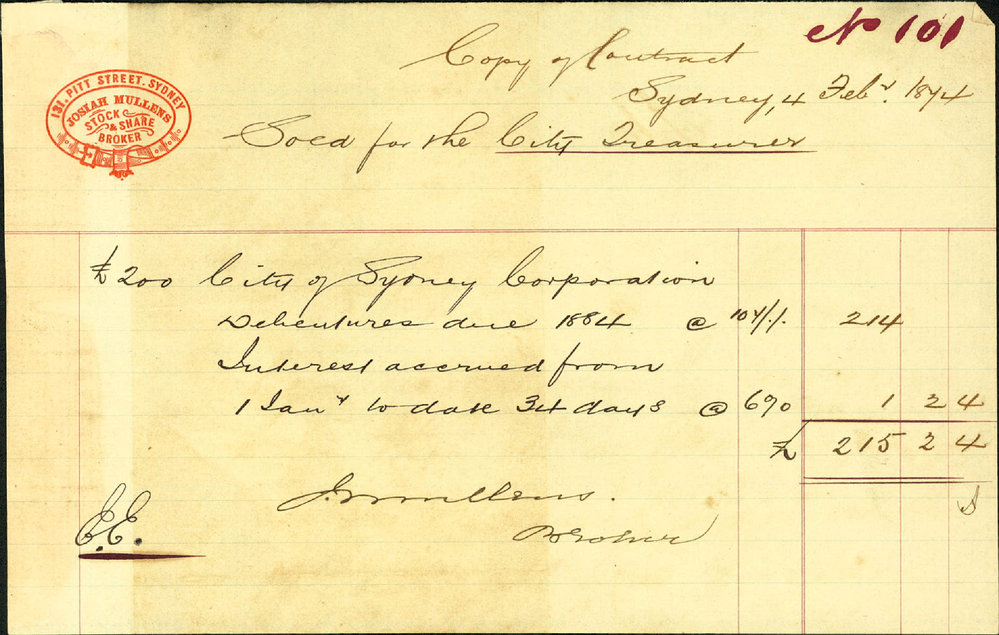 No 101
Copy of Contract
Sydney, 4 Feby. 1874
131. PITT STREET. SYDNEY
JOSIAH MULLENS
STOCK
& SHARE
BROKER
Sold for the City Treasurer
£200 City of Sydney Corporation
Debentures due 1884 @ 107/. 214
Interest accrued from
1 Jany to date 34 days @ 6% 1 2 4
£ 215 2 4
J. Mullens.
Broker
E.E.